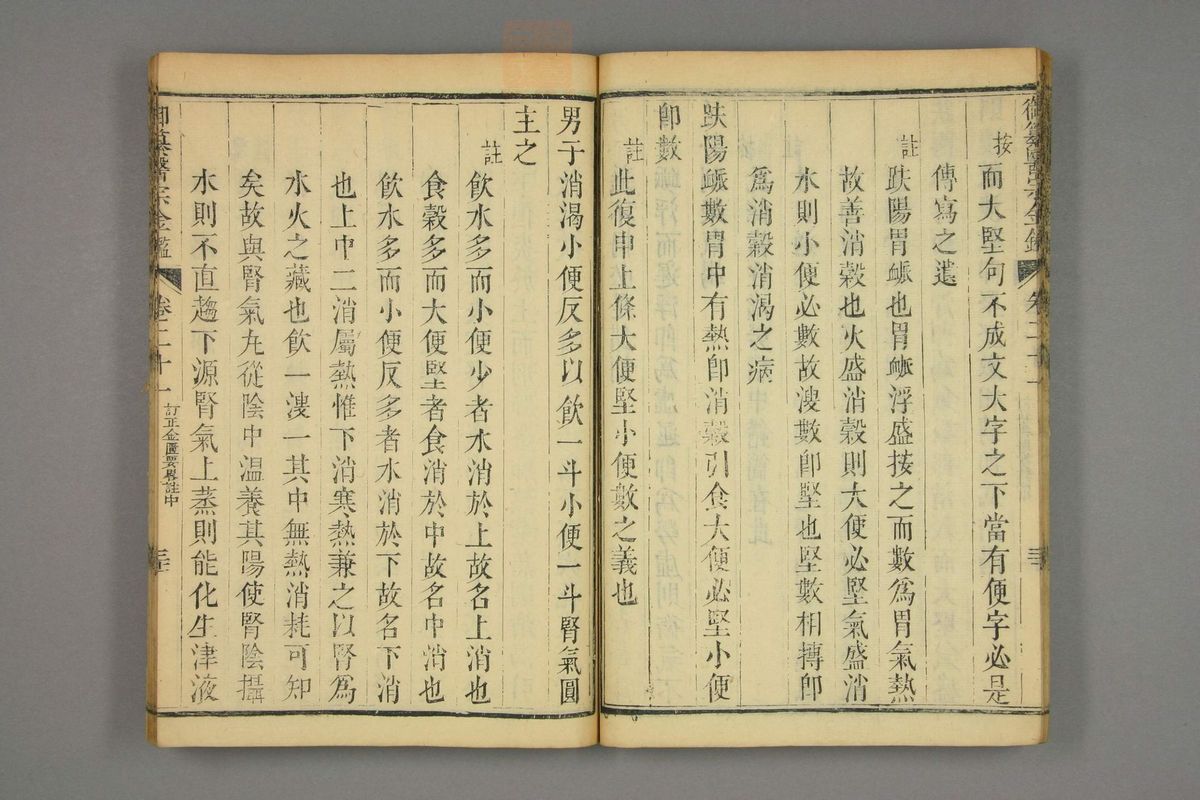 按 而大堅句不成文大字之下當有便字必是
傳寫之遺
註 趺陽胃脈也胃脈浮盛按之而數為胃氣熱
故善消穀也火盛消穀則大便必堅氣盛消
水則小便必數故溲數即堅也堅數相搏即
為消穀消渴之病
趺陽脈數胃中有熱即消穀引食大便必堅小便
即數
註 此復申上條大便堅小便數之義也
男子消渴小便反多以飲一斗小便一斗腎氣圓
主之
註 飲水多而小便少者水消於上故名上消也
食穀多而大便堅者食消於中故名中消也
飲水多而小便反多者水消於下故名下消
也上中二消屬熱惟下消寒熱兼之以腎為
水火之藏也飲一溲一其中無熱消耗可知
矣故與腎氣丸從陰中溫養其陽使腎陰攝
水則不直趨下源腎氣上蒸則能化生津液
御纂醫宗金鑑 卷二十一 訂正金匱要畧註中